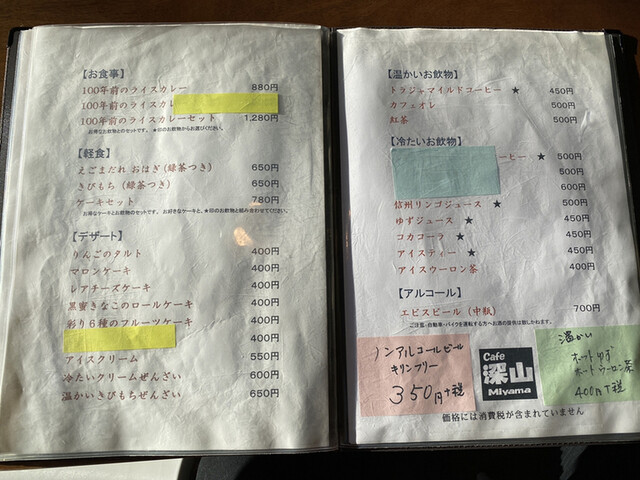 【お食事】
100年前のライスカレー 880円
100年前のライスカ
100年前のライスカレーセット 1,280円
お得なお飲物とのセットです。 ★印のお飲物からお選びください。
【軽食】
えごまだれ おはぎ(緑茶つき) 650円
きびもち (緑茶つき) 650円
ケーキセット 780円
お得なケーキとお飲物のセットです。 お好きなケーキと、★印のお飲物と組み合わせてください。
【デザート】
りんごのタルト 400円
マロンケーキ 400円
レアチーズケーキ 400円
黒蜜きなこのロールケーキ 400円
彩り6種のフルーツケーキ 400円
400円
アイスクリーム 550円
冷たいクリームぜんざい 600円
温かいきびもちぜんざい 650円
【温かいお飲物】
トラジャマイルドコーヒー ★ 450円
カフェオレ 500円
紅茶 500円
【冷たいお飲物】
ーヒー ★ 500円
500円
600円
信州リンゴジュース ★ 500円
ゆずジュース ★ 450円
コカコーラ ★ 450円
アイスティー ★ 450円
アイスウーロン茶 400円
【アルコール】
エビスビール (中瓶) 700円
ご注意:自動車・バイクを運転する方へお酒の提供は致しかねます。
ノンアルコールビール
キリンフリー
350円+税
Cafe
深山
Miyama
温かい
ホットゆず
ホットウーロン茶
400円+税
価格には消費税が含まれていません